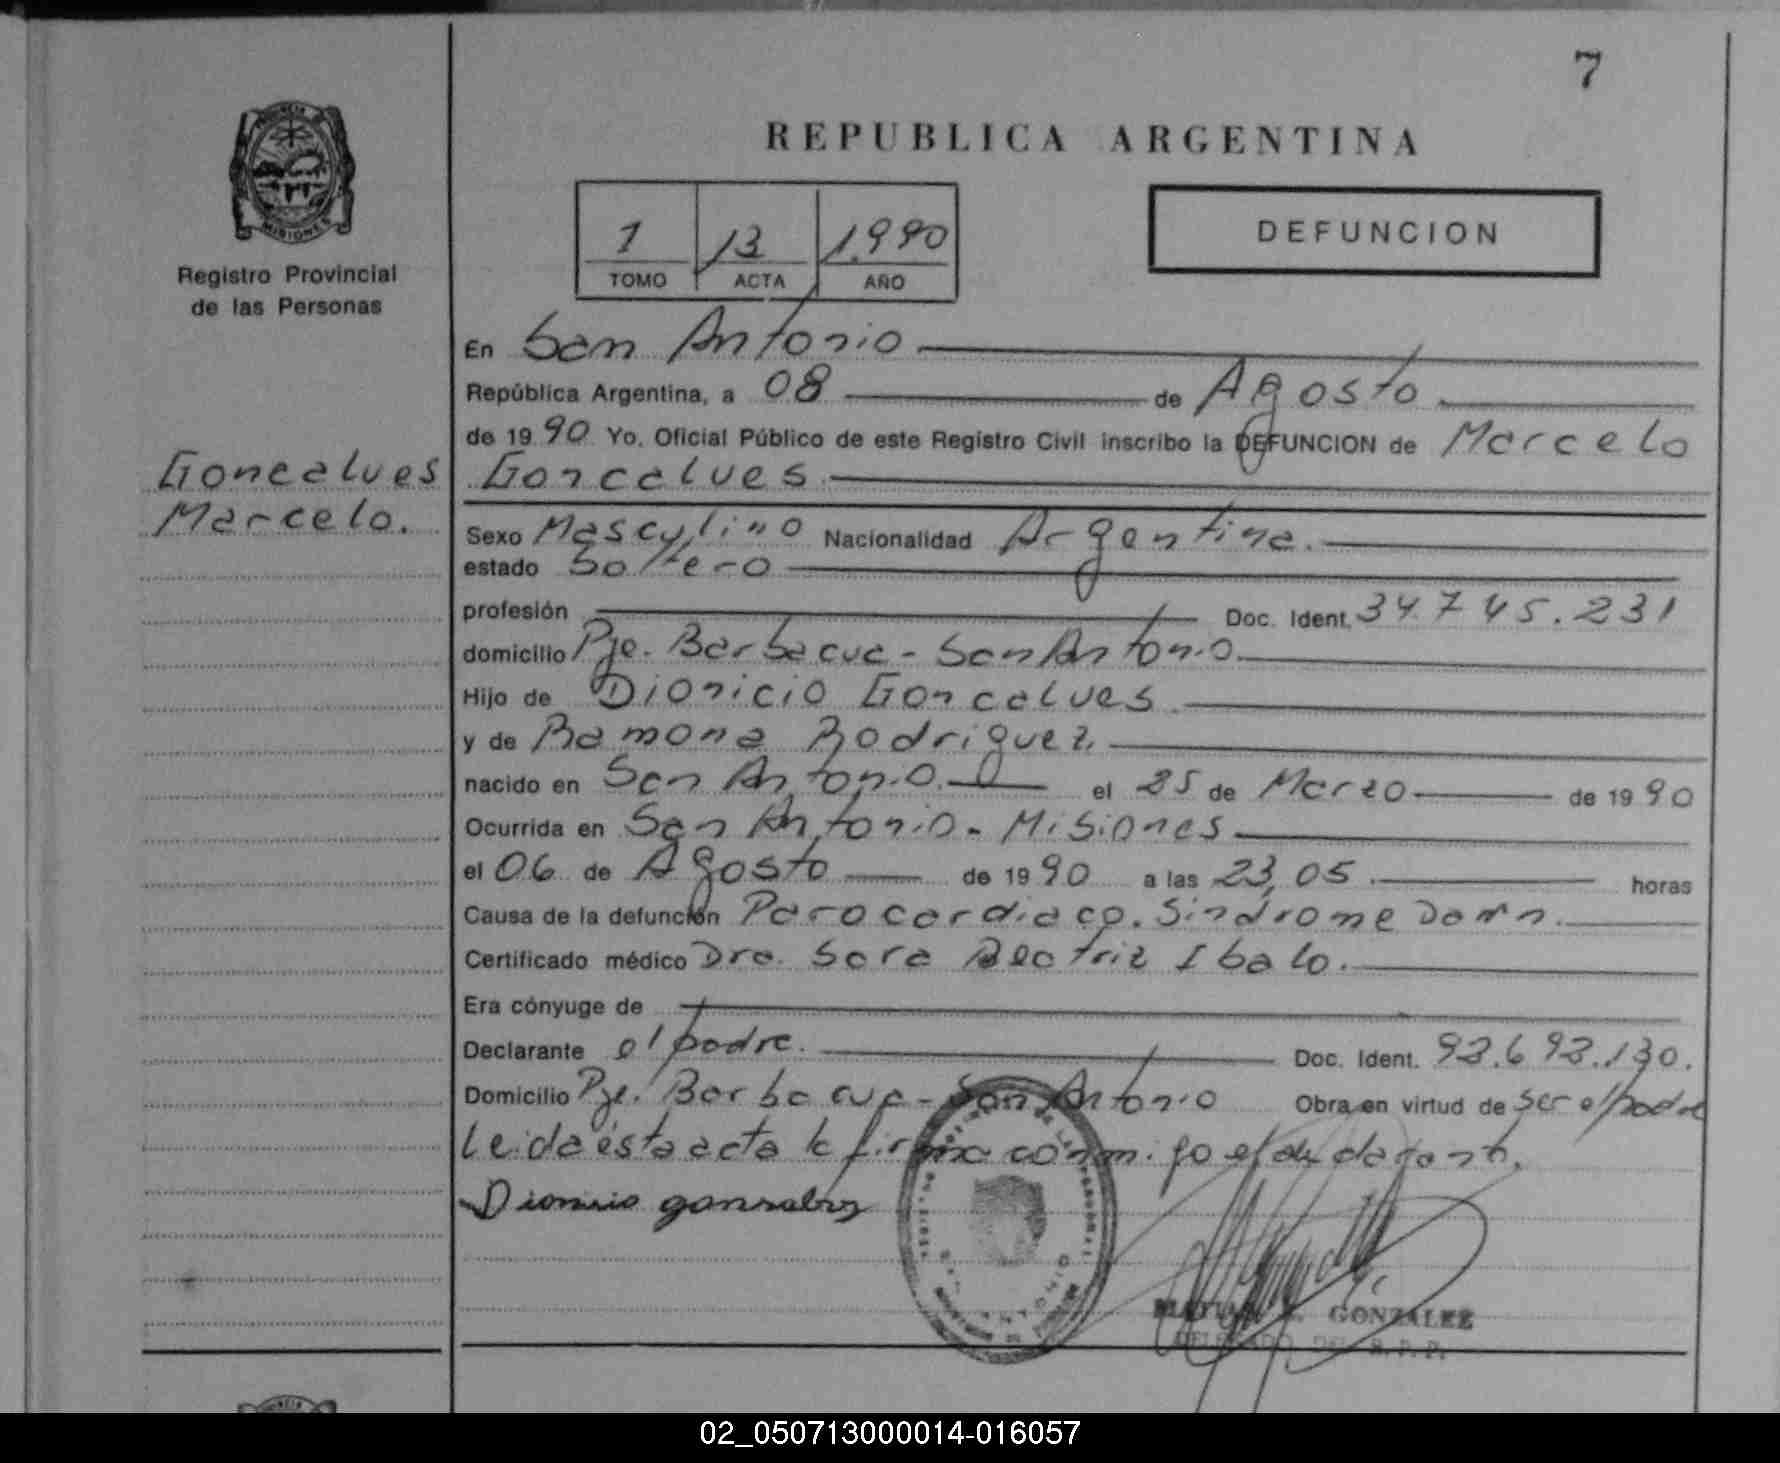 7
REPUBLICA ARGENTINA
MISIONES
Registro Provincial
de las Personas
1 13 1.990
TOMO ACTA AÑO
DEFUNCION
En San Antonio
República Argentina, a 08 de Agosto
de 1990 Yo, Oficial Público de este Registro Civil inscribo la DEFUNCION de Marcelo
Goncalves
Goncalves
Marcelo.
Sexo Masculino Nacionalidad Argentina.
estado Soltero
profesión Doc. Ident. 34.745.231
domicilio Pje. Barbacua - San Antonio
Hijo de Dionicio Goncalves
y de Ramona Rodriguez.
nacido en San Antonio. el 25 de Marzo de 1990
Ocurrida en San Antonio - Misiones
el 06 de Agosto de 1990 a las 23,05 horas
Causa de la defunción Parocardiaco. Sindrome Down.
Certificado médico Dra. Sara Beatriz Ibalo.
Era cónyuge de
Declarante el padre. Doc. Ident. 92.692.130.
Domicilio Pje. Barbacua - San Antonio Obra en virtud de ser el padre
Leida ésta acta la firma conmigo el declarante.
Dionicio
GONZALEZ
DELEGADO DEL R.P.P.
02_050713000014-016057